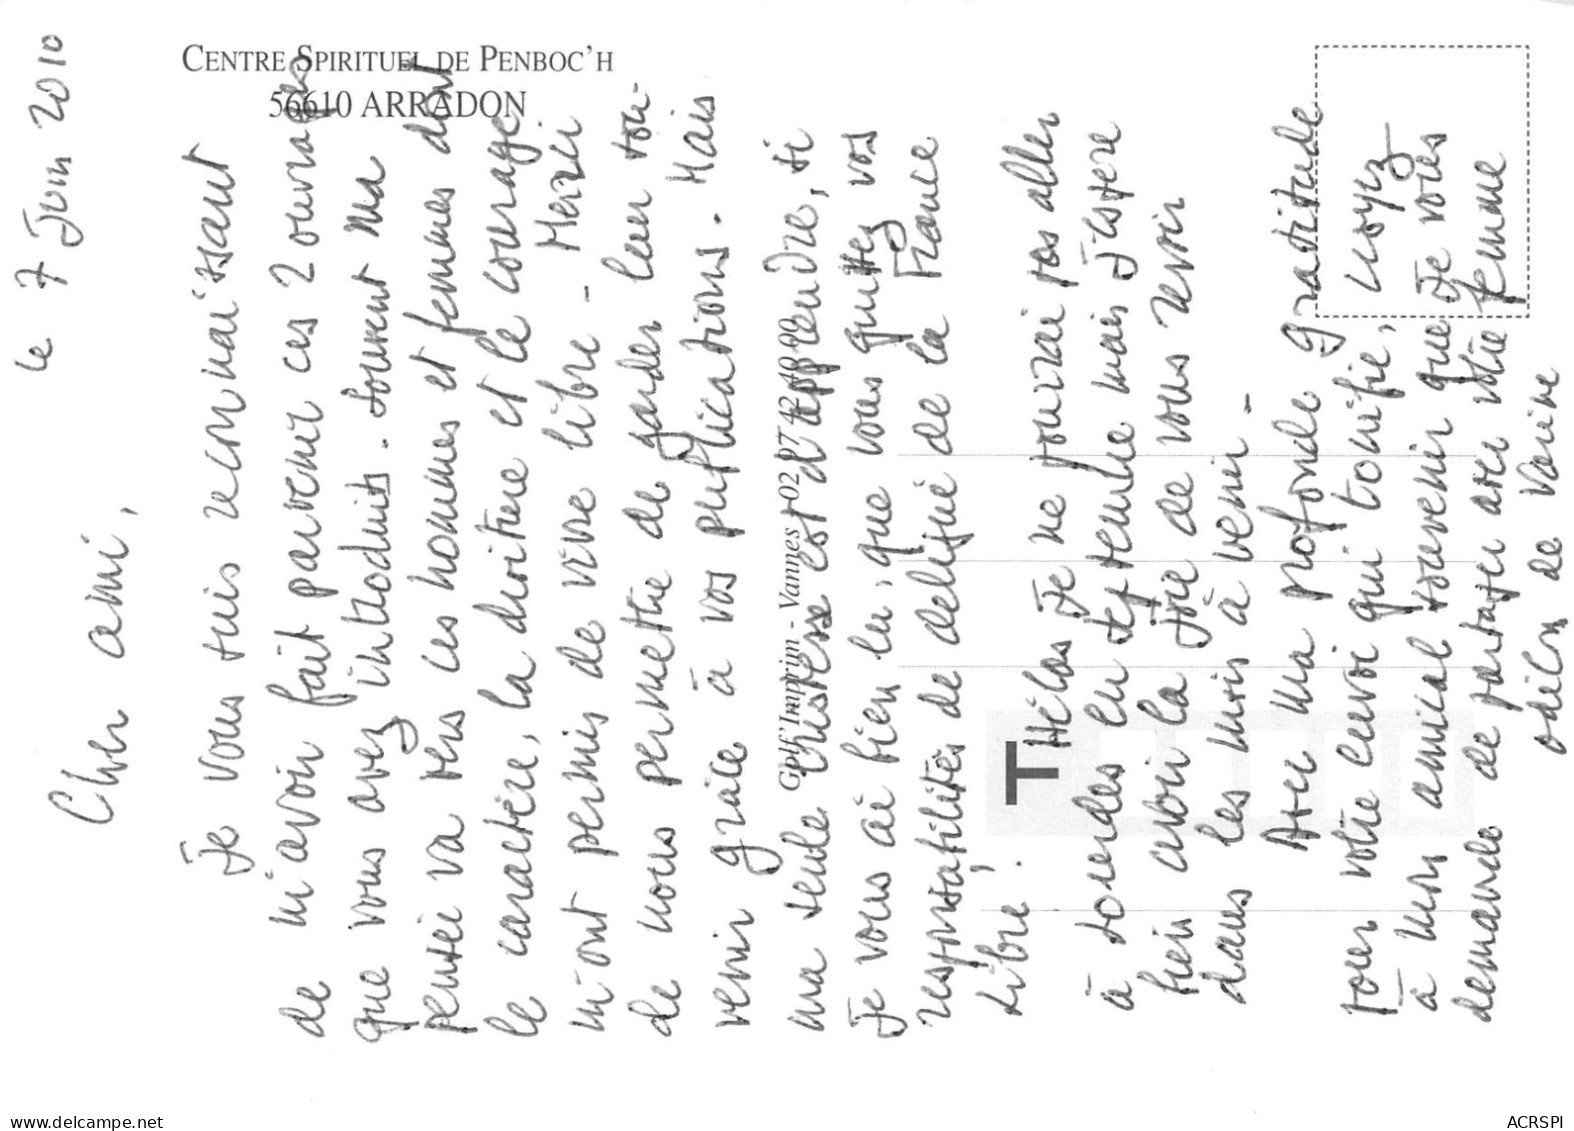 CENTRE SPIRITUEL DE PENBOC'H
56610 ARRADON
Golf'Imprim - Vannes - 02 97 42 40 09
T
le 7 Juin 2010
Cher ami,
Je vous suis reconnaissant
de m'avoir fait parvenir ces 2 ouvrages
que vous avez introduits. Souvent ma
pensée va vers ces hommes et femmes dont
le caractère, la droiture et le courage
m'ont permis de vivre libre - Merci
de nous permettre de garder leur sou-
venir grâce à vos publications. Mais
ma seule tristesse est d'apprendre, si
je vous ai bien lu, que vous quittez vos
responsabilités de délégué de la France
Libre.
Hélas je ne pourrai pas aller
à en septembre mais j'espère
bien avoir la joie de vous revoir
dans les mois à venir -
Avec ma profonde gratitude
pour votre envoi qui tonifie, croyez
à mon amical souvenir que je vous
demande de partager avec votre femme
odilon de Varine
www.delcampe.net
ACRSPI